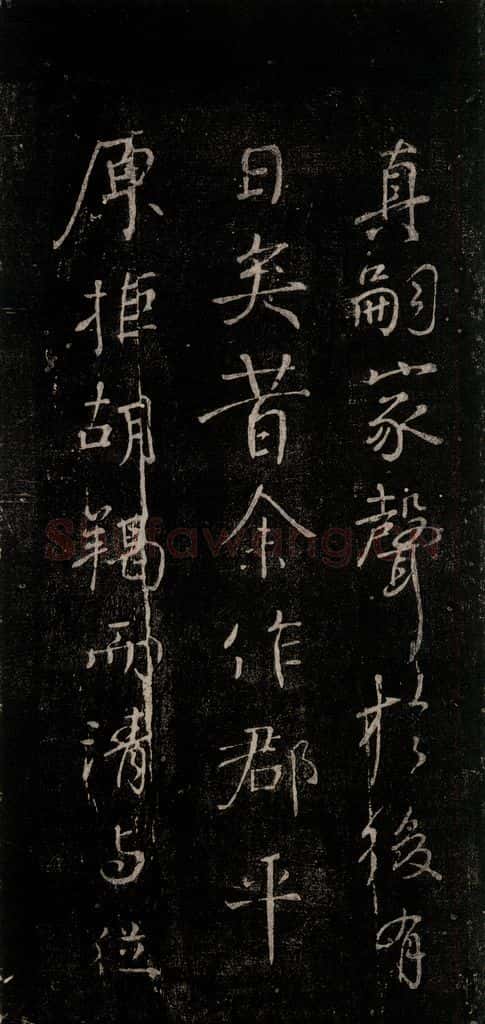 真嗣家聲於後有
日矣昔余作郡平
原拒胡羯而清与從
Shufawang.cn